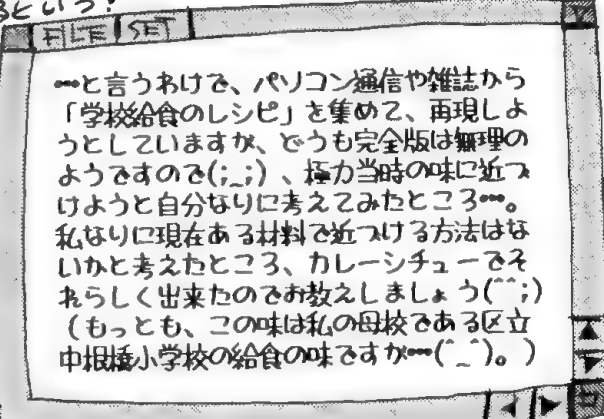 るという!
FILE SET
…と言うわけで、パソコン通信や雑誌から
「学校給食のレシピ」を集めて、再現しよ
うとしていますが、どうも完全版は無理の
ようですので(;_;)、極力当時の味に近づ
けようと自分なりに考えてみたところ…。
私なりに現在ある材料で近づける方法はな
いかと考えたところ、カレーシチューでそ
れらしく出来たのでお教えしましょう(^^;)
(もっとも、この味は私の母校である区立
中根橋小学校の給食の味ですが…(^_^)。)